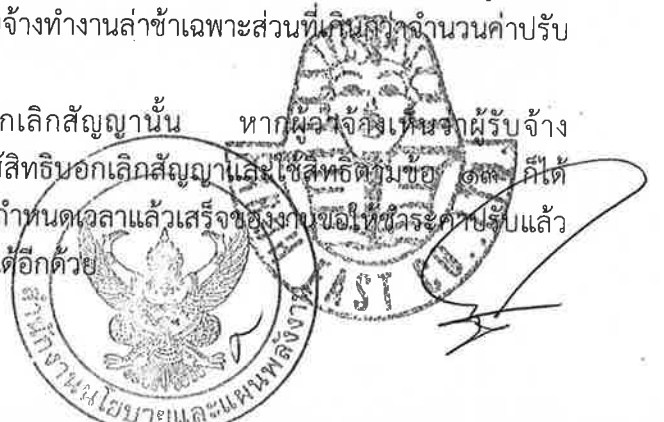 จ้างทำงานล่าช้าเฉพาะส่วนที่เกินกว่าจำนวนค่าปรับ
กเลิกสัญญานั้น หากผู้ว่าจ้างเห็นว่าผู้รับจ้าง
สิทธิบอกเลิกสัญญาและใช้สิทธิตามข้อ ๑๓ ก็ได้
กำหนดเวลาแล้วเสร็จของงานขอให้ชำระค่าปรับแล้ว
ได้อีกด้วย
สำนักงานนโยบายและแผนพลังงาน